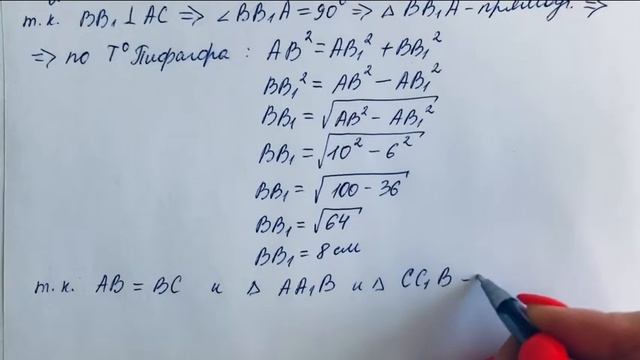 т.к. BB₁ ⊥ AC ⇒ ∠BB₁A = 90° ⇒ △ BB₁A - прямоуг. ⇒
⇒ по Т° Пифагора : AB² = AB₁² + BB₁²
BB₁² = AB² - AB₁²
BB₁ = √AB² - AB₁²
BB₁ = √10² - 6²
BB₁ = √100 - 36
BB₁ = √64
BB₁ = 8 см
т.к. AB = BC и △ AA₁B и △ CC₁B -